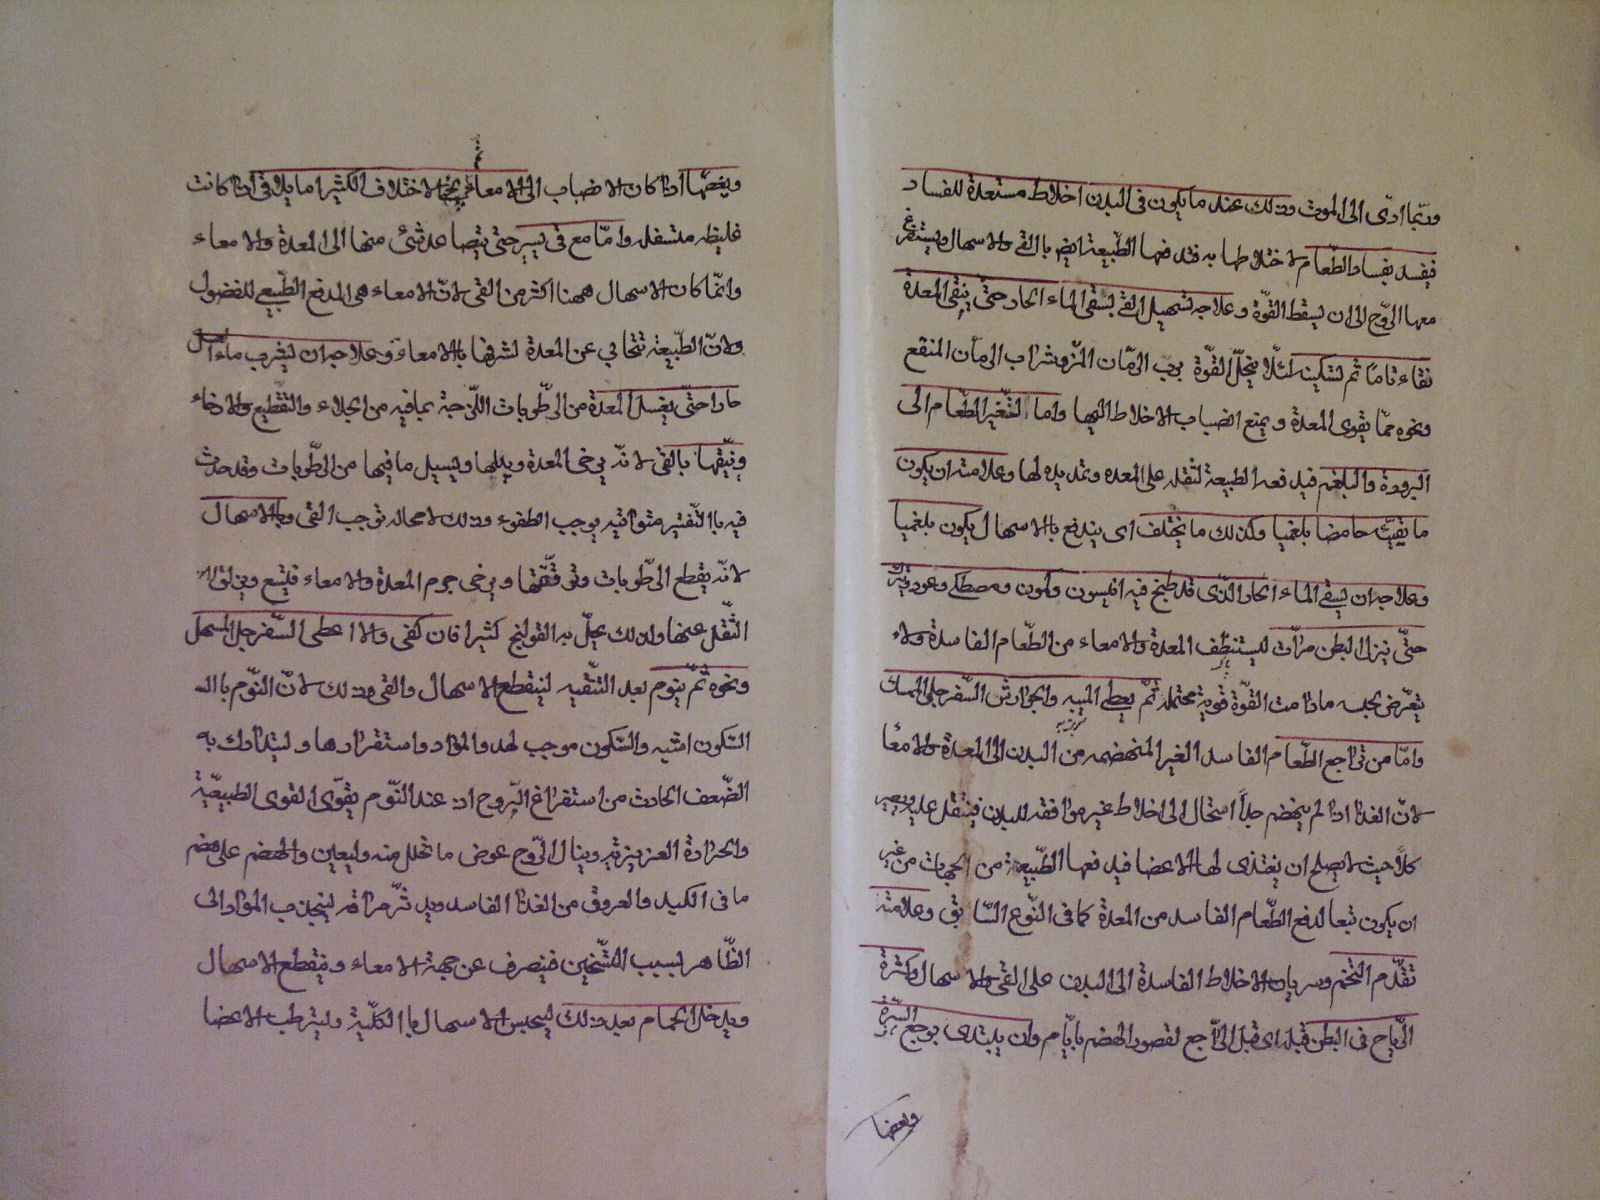 وربّما ادّى الى الموت وذلك عند ما يكون فى البدن اخلاط مستعدة للفساد
فيفسد بفساد الطّعام لاختلاطها به فتدفعها الطّبيعة ايضا بالقى والاسهال ويستفرغ
معها الرّوح الى ان يسقط القوّة وعلاجه تسهيل القى بسقى الماء الحار حتّى ينقى المعدة
نقاء تامّا ثم تسكينه لئلّا ينحلّ القوّة بربّ الرّمان المزّ وشراب الرمان المنقع
ونحوه ممّا يقوى المعدة ويمنع انصباب الاخلاط اليها واما لتغير الطّعام الى
البرودة والبلغم فيدفعه الطبيعة لثقله على المعده وتمديده لها وعلامته ان يكون
ما يقيئه حامضا بلغميا وكذلك ما يختلف اى يندفع بالاسهال يكون بلغميا
وعلاجه ان يسقى الماء الحار الذى قد طبخ فيه انيسون وكمون ومصطكى وعود
حتّى ينزل البطن مرّات ليستنظف المعدة والامعاء من الطّعام الفاسدة ولا
يتعرّض بحبسه ما دامت القوّة قوية محتمله ثمّ يعطى الميبه والجوارش السّفرجلى الممسك
وامّا من تراجع الطّعام الفاسد الغير المنهضمه من البدن الى المعدة والامعا
لان الغذا اذا لم ينهضم جيداً استحال الى اخلاط غير موافقه للبدن فيثقل عليه ويصير
كلّا حيث لا يصلح ان يغتذى لها الاعضا فيدفعها الطّبيعة من الجهات من غير
ان يكون تبعا لدفع الطّعام الفاسد من المعدة كما فى النّوع السّابق وعلامته
تقدّم التخم وسريان الاخلاط الفاسدة الى البدن على القى والاسهال وكثرة
الرّياح فى البطن قبله اى قبل التّراجع لقصور الهضم بايّام وان يبتدى بوجع السّرّة
وبعضا
وبعضها اذا كان الانصباب الى الامعاء ثم يخ الاختلاف الكثير اما يلا قى اذا كانت
غليظه متسفله وامّا مع قى يسير حتى يتصاعد شئ منها الى المعدة والامعاء
وانّما كان الاسهال ههنا اكثر من القى لانّ الامعاء هى المدفع الطّبيعى للفضول
ولانّ الطّبيعة تتحامى عن المعدة لشرفها بالامعاء وعلاجه ان يشرب ماء العسل
حارا حتّى يغسل المعدة من الرّطوبات اللّزجة بما فيه من الجلاء والتّقطيع والارخاء
وينقّيها بالقى لانّه يرخى المعدة ويبلها ويسيل ما فيها من الرّطوبات وقد حدث
فيه بالتّفتير متوّاتيه يوجب الطفوء وذلك لا محاله توجب القى وبالاسهال
لانّه يقطع الرّطوبات وترقّقها ويرخى جرم المعدة والامعاء فليتبع ويزلق
الثّقل عنها ولذلك يحلّ به القولنج كثيرا فان كفى والا اعطى السّفرجل المسهل
ونحوه ثمّ ينوم بعد التنقيه لينقطع الاسهال والقى وذلك لانّ النّوم بال
السّكون اشبه والسّكون موجب لهدو المواد واستقرارها وليتدارك به
الضّعف الحادث من استفراغ الرّوح اذ عند النّوم يقوّى القوى الطبيعيّة
والحرارة الغريزية وينال الرّوح عوض ما تحلل منه وليعين والهضم على هضم
ما فى الكبد والعروق من الغذا الفاسد ويدثّر مراقه لينجذب المواد الى
الظّاهر بسبب التّسخين فينصرف عن جهة الامعاء وينقطع الاسهال
ويدخل الحمام بعد ذلك ليحبس الاسهال بالكلّية وليترطب الاعضا